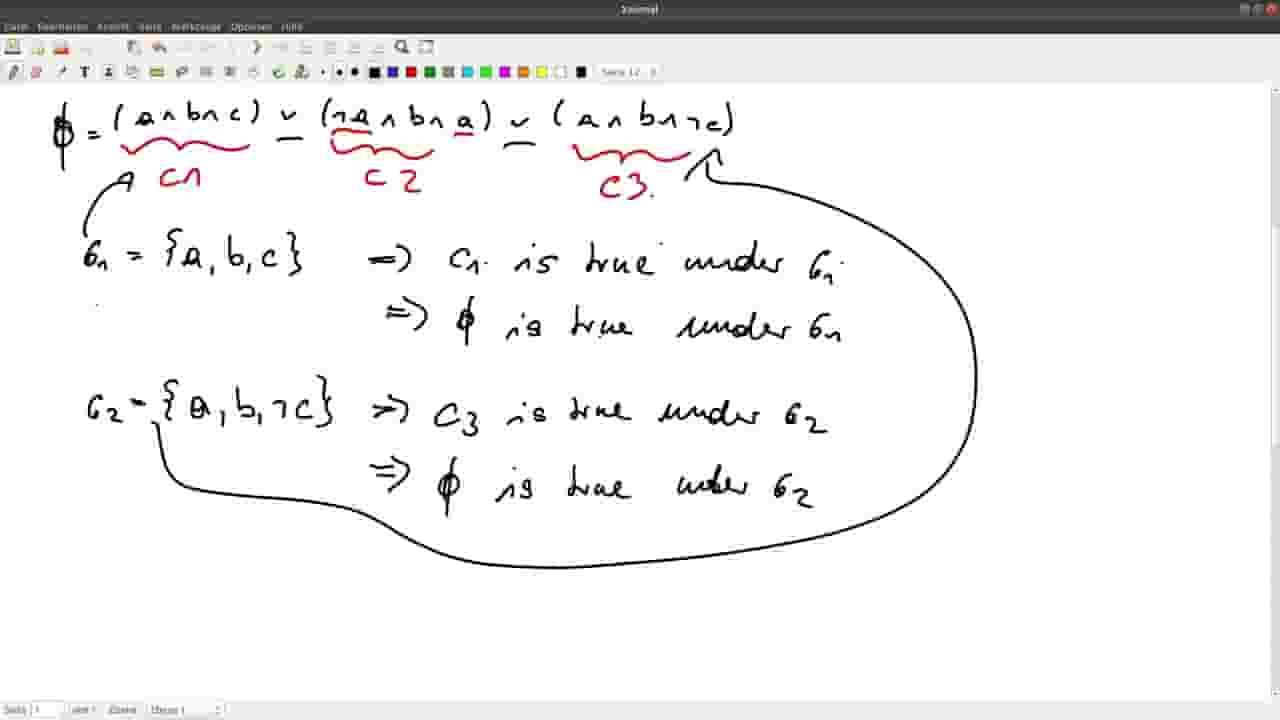 Xournal
Datei Bearbeiten Ansicht Seite Werkzeuge Optionen Hilfe
T Seite 12
ϕ = (a ∧ b ∧ c) ∨ (¬a ∧ b ∧ a) ∨ (a ∧ b ∧ ¬c)
C1 C2 C3.
σ1 = {a, b, c} => C1 is true under σ1
=> ϕ is true under σ1
σ2 = {a, b, ¬c} => C3 is true under σ2
=> ϕ is true under σ2
Seite 1 von 1 Ebene Ebene 1